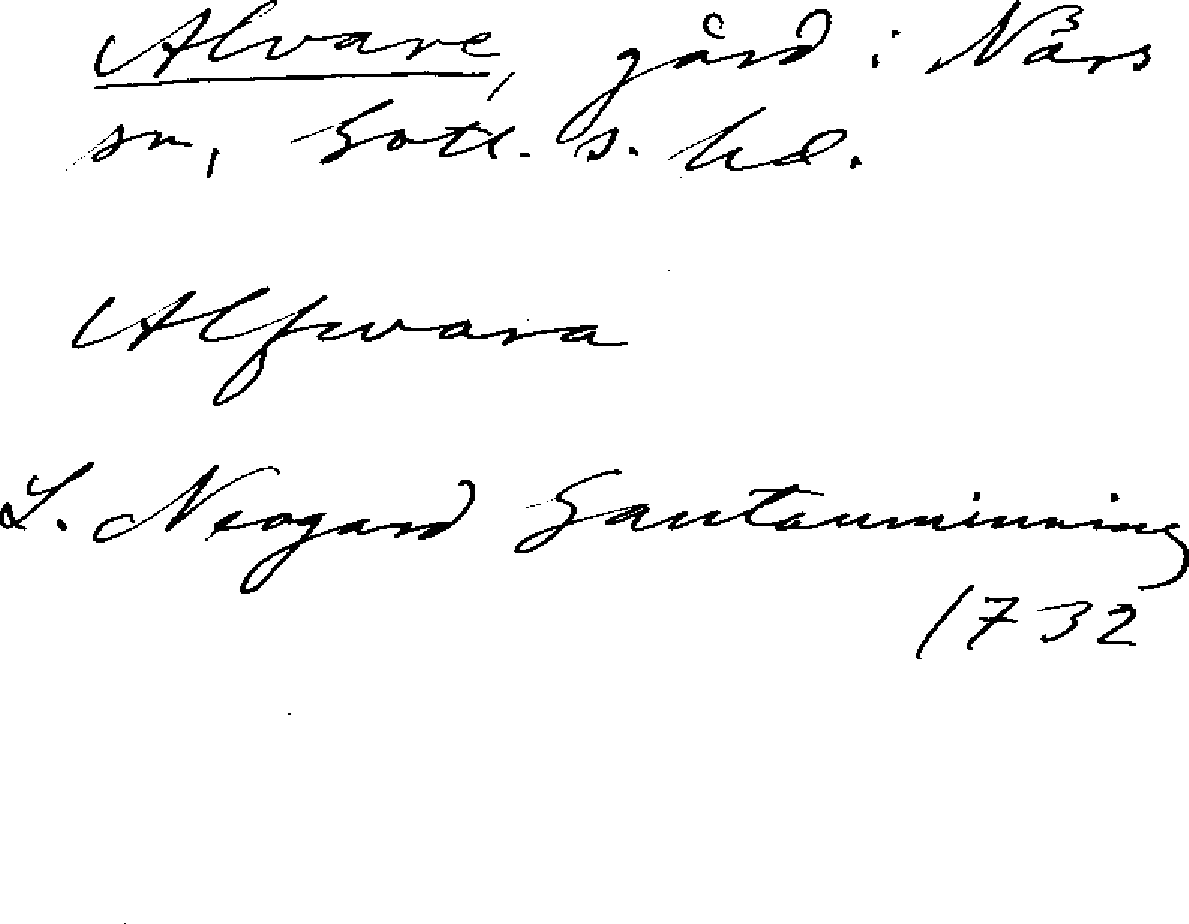 Alvare, gård i När s
sn, Gotl. s. hd.
Alfwara
L. Neogard Gautauminning
1732